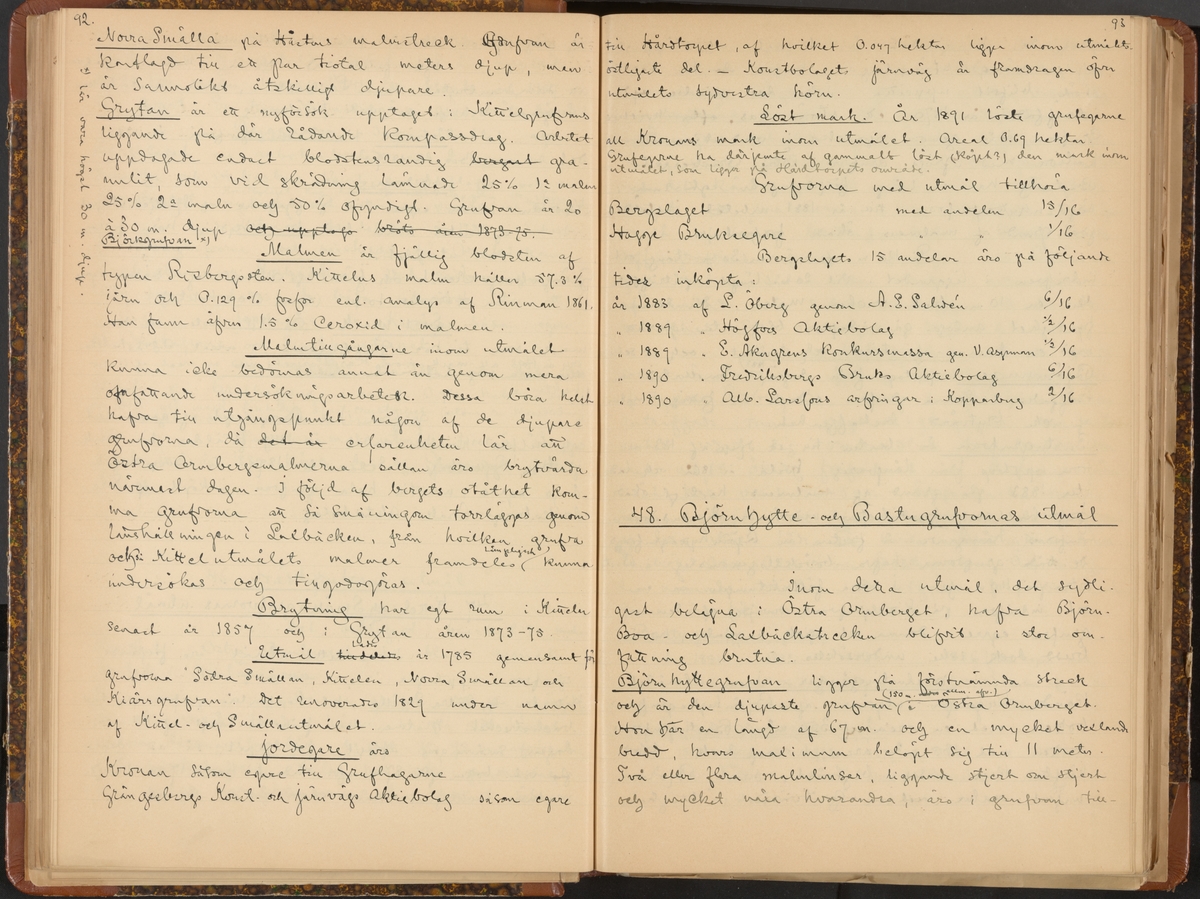 92.
Norra Smälla på Kittelns malmstreck. Grufvan är
konflagd till ett par tiotal meters djup, men
är sannolikt åtskilligt djupare.
Grytan är ett nyförsök upptaget i Kittelgrufvans
liggande på där rådande kompassdrag. Arbetet
uppdagade endast blodstensrandig bergart gra-
nulit, som vid skrädning lämnade 25% 1a malm
25% 2a malm och 50% ofyndigt. Grufvan är 20
à 30 m. djup och upptogs bröts åren 1873-75.
Björkgrufvan x)
x) lär vara högst 30 m. djup.
Malmen är fjällig blodsten af
typen Risbergsten. Kittelns malm håller 57.3%
järn och 0.129% fosfor enl. analys af Rinman 1861.
Han fann äfven 1.5% Ceroxid i malmen.
Malmtillgångarne inom utmålet
kunna icke bedömas annat än genom mera
omfattande undersökningsarbeten. Dessa böra helst
hafva till utgångspunkt någon af de djupare
grufvorna, då det är erfarenheten lär att
Östra Ormbergsmalmerna sällan äro brytvärda
närmast dagen. I följd af bergets otäthet kom-
ma grufvorna att så småningom torrläggas genom
länshållningen i Laxbäcken, från hvilken grufva
och Kittelutmålets malmer framdeles lämpligast kunna
undersökas och tillgodogöras.
Brytning har egt rum i Kitteln
senast år 1857 och i Grytan åren 1873-75.
Utmål tilldelades lades år 1785 gemensamt för
grufvorna "Södra Smällan, Kittelen, Norra Smällan och
Kiärrgrufvan". Det renoverades 1829 under namn
af Kittel- och Smällanutmålet.
Jordegare äro
Kronan såsom egare till Grufhagarne
Grängesbergs Konst- och Järnvägs Aktiebolag såsom egare
93
till Hårdtorpet, af hvilket 0.047 hektar ligga inom utmålets
östligaste del. — Konstbolagets järnväg är framdragen öfver
utmålets sydvestra hörn.
Löst mark. År 1891 löste grufegarne
all Kronans mark inom utmålet. Areal 0.69 hektar.
Grufegarne ha därjemte af gammalt löst (köpt?) den mark inom
utmålet, som ligger på Hårdtorpets område.
Grufvorna med utmål tillhöra
Bergslaget med andelen 15/16
Hagge Bruksegare " " 1/16
Bergslagets 15 andelar äro på följande
tider inköpta:
år 1883 af L. Öberg genom A. G. Salwén 6/16
" 1889 " Högfors Aktiebolag ½/16
" 1889 " E. Åkngrens Konkursmassa gen. V. Aspman ½/16
" 1890 " Fredriksbergs Bruks Aktiebolag 6/16
" 1890 " Alb. Larssons arfvingar i Kopparberg 2/16
48. Björnhytte- och Bastugrufvornas utmål
Inom detta utmål, det sydli-
gast belägna i Östra Ormberget, hafva Björn-
Boa- och Laxbäckstrecken blifvit i stor om-
fattning brutna.
Björnhyttegrufvan ligger på förstnämnda streck
och är den djupaste grufvan i Östra Ormberget.
Hon har en längd af 67 m. och en mycket vexlande
bredd, hvars maximum belöpt sig till 11 meter.
Två eller flera malmlinser, liggande stjert om stjert
och mycket nära hvarandra, äro i grufvan till-